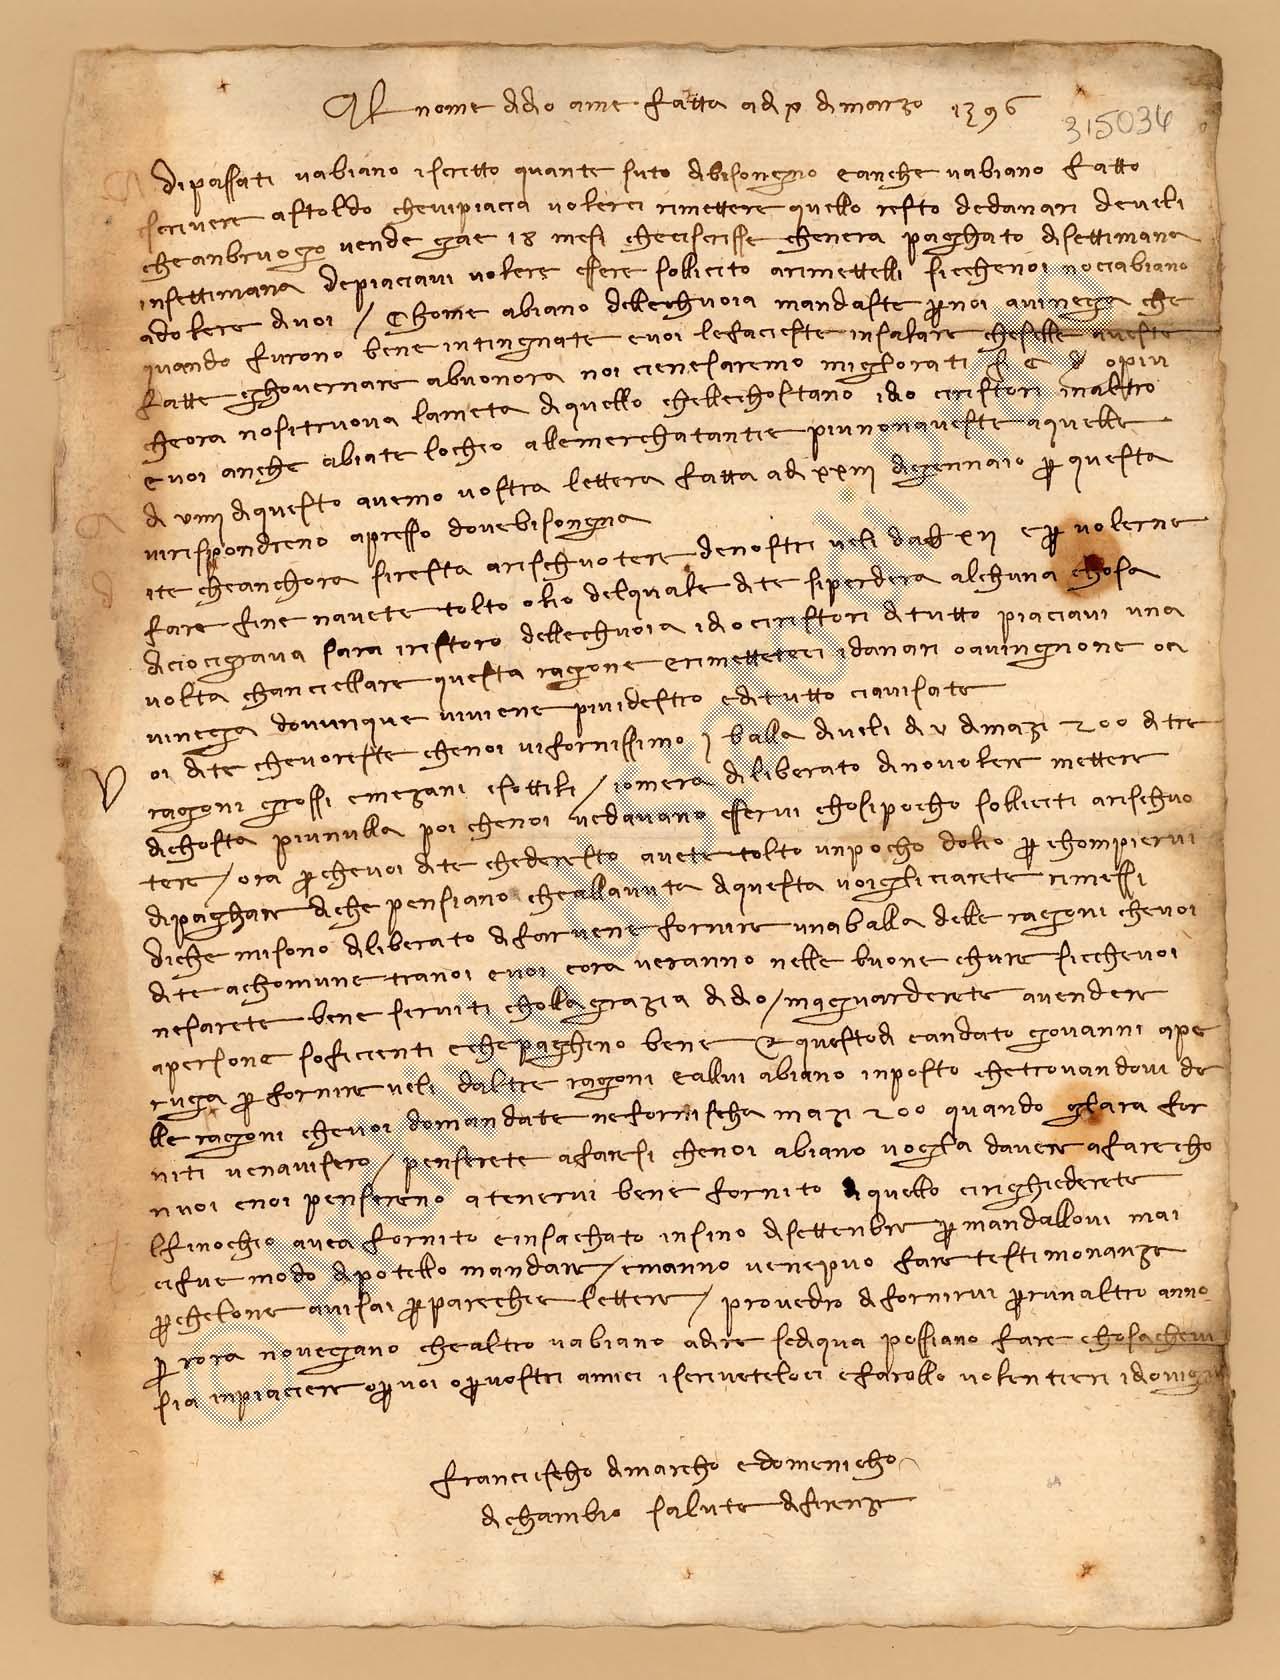 Al nome di dio ame fatta a di x di marzo 1396
315034
A di passati v abiano iscritto quante suto di bisongno e anche v abiano fatto
iscrivere a stoldo che vi piacia volerci rimettere quello resto de danari de veli
che anbruogo vende gae 18 mesi che ci scrisse che n era paghato di settimana
in settimana de piaciavi volere essere sollicito a rimettelli sicche noi no ci abiano
a dolere di voi / Chome abiano delle chuoia mandaste per noi a vinega che
quando furono bene intingnate e voi le facieste insalare che selle aveste
fatte ghovernare a buonora noi cie ne saremo migliorati f C d opiu
che ora no si truova la meta di quello chelle chostano idio ci ristori in altro
e voi anche abiate lochio alle merchatantie piu non aveste a quelle
A di viiii di questo avemo vostra lettera fatta a di xxiii di gennaio per questa
vi rispondreno apresso dove bisongna
dite che anchora si resta a rischuotere de nostri veli da xii e per volerne
fare fine n avete tolto olio del quale dite si perdera alchuna chosa
di cio ci grava sara i ristoro delle chuoia idio ci ristori di tutto piaciavi una
volta chanciellare questa ragone e rimetteteci i danari o a vingnone o a
vinega dovunque vi viene piu destro e di tutto ci avisate
Voi dite che voreste che noi vi fornissimo j balla di veli di v di mazi 200 di tre
ragoni grossi e mezani e sottili / io m era diliberato di no volere mettere
di chosta piu nulla poi che noi vedavano esservi chosi pocho solliciti a rischuo
tere / ora perche voi dite che de resto avete tolto un pocho dolio per chompiervi
di paghare di che pensiano che alla auta di questa voi gli ci arete rimessi
di che mi sono diliberato di farvene fornire una balla delle ragoni che voi
dite a chomune tra noi e voi e ora veranno nelle buone chure sicche voi
ne sarete bene serviti cholla grazia di dio / ma guarderete a vendere
a persone soficienti e che paghino bene & questo di e andato govanni a pe
ruga per fornire veli d altre ragoni e a llui abiano inposto che trovandovi de
lle ragoni che voi domandate ne fornischa mazi 200 quando gl ara for
niti ve n aviséro / penserete a fare si che noi abiano voglia d avere a fare cho
n voi e noi penséreno a tenervi bene fornito di quello ci righiederete
Il finochio avea fornito e insachato insino di settenbre per mandallovi mai
ci fue modo di potello mandare / e manno ve ne puo fare testimonanze
perche lo ne avisai per parechie lettere / provedro di fornirvi per un altro anno
per ora no vegano che altro v abiano a dire se di qua possiano fare chosa che vi
sia in piaciere o per voi o per vostri amici iscriveteloci e farollo volentieri idio vi gu
francischo di marcho e domenicho
di chambio salute di firenze